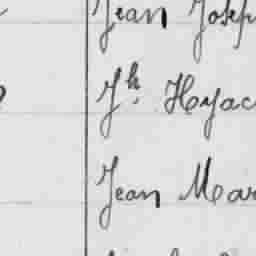 Jean Josep
Jh. Hyac
Jean Mar